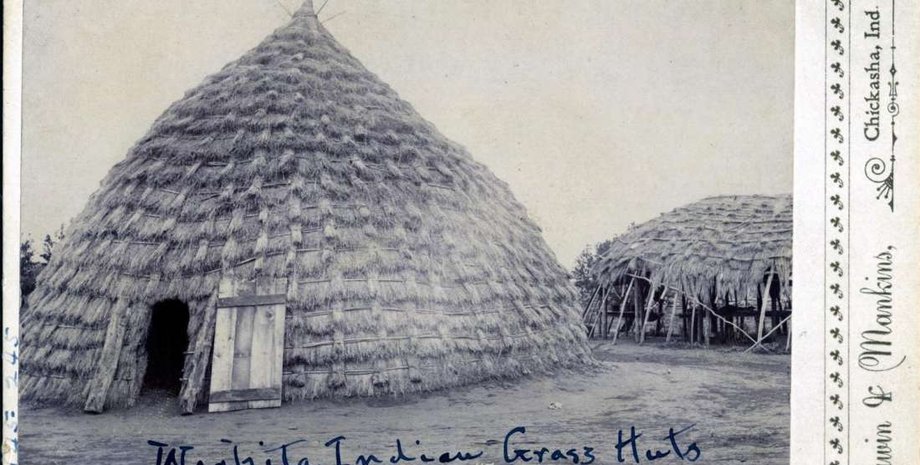 Wichita Indian Grass Huts
Chickasha, Ind.
win & Mankins,